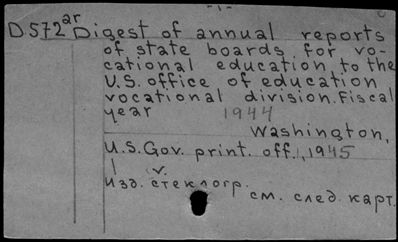 - 1 -
D572ar Digest of annual reports
of state boards for vo-
cational education to the
U.S. office of education
vocational division. Fiscal
year 1944
Washington,
U.S. Gov. print. off., 1945
1 v.
Изд. стеклогр.
см. след. карт.